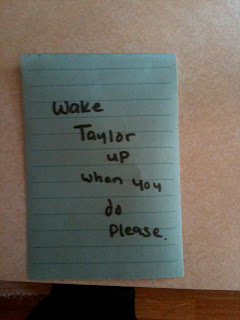 Wake
Taylor
up
when you
do
please.